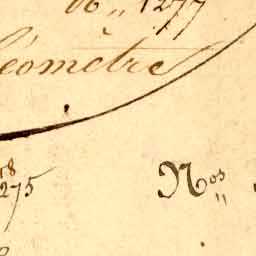 N° „ 1277
Géomètre
18
275
Nos „